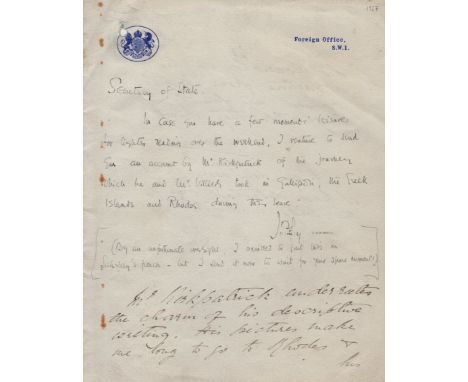 1927
Foreign Office,
S.W.1.
Secretary of State.
In case you have a few moments' leisure
for lighter reading over the weekend, I venture to send
you an account by Mr Kirkpatrick of the journey
which he and Mr took in Gallipoli, the Greek
Islands and Rhodes during their leave.
(By an unfortunate oversight, I omitted to put this in
Saturday's pouch - but I send it now to wait for your spare moments)
Mr Kirkpatrick underrates
the charm of his descriptive
writing. His pictures make
me long to go to Rhodes &
his